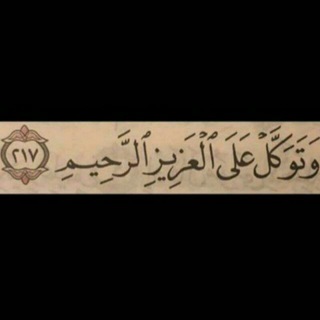 وَتَوَكَّلْ عَلَى ٱلْعَزِيزِ ٱلرَّحِيمِ ٢١٧